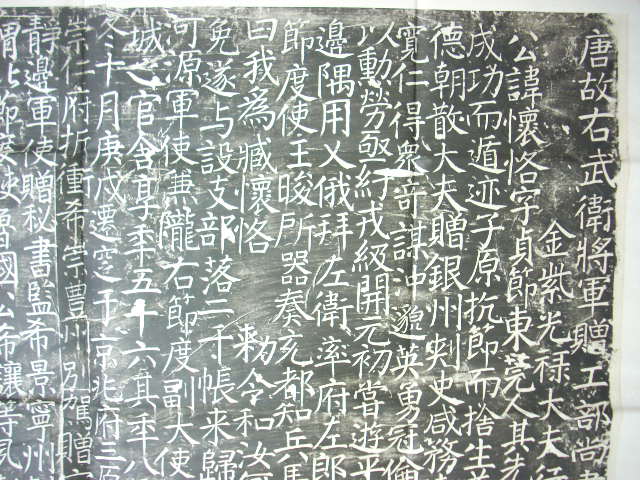 唐故右武衛將軍贈工部尚
金紫光祿大夫行
公諱懷恪字貞節東莞人其先
成功而遁迹子原抗節而捨生
德朝散大夫贈銀州刾史咸務
寬仁得衆奇謀沖邈英勇冠倫
以勳勞亟紆戎級開元初嘗遊平
邊隅用乂俄拜左衛率府左郎
節度使王晙所器奏充都知兵馬
曰我為臧懷恪 敕令和汝
免遂与設支部落二千帳来歸
可原軍使兼隴右節度副大使
城之官舍享年五十六其年八
冬十月庚戌遷窆于京兆府三原
崇仁府折衝希崇豐州別駕贈
靜邊軍使贈秘書監希景寧州
渭北節度使魯國公希讓等夙